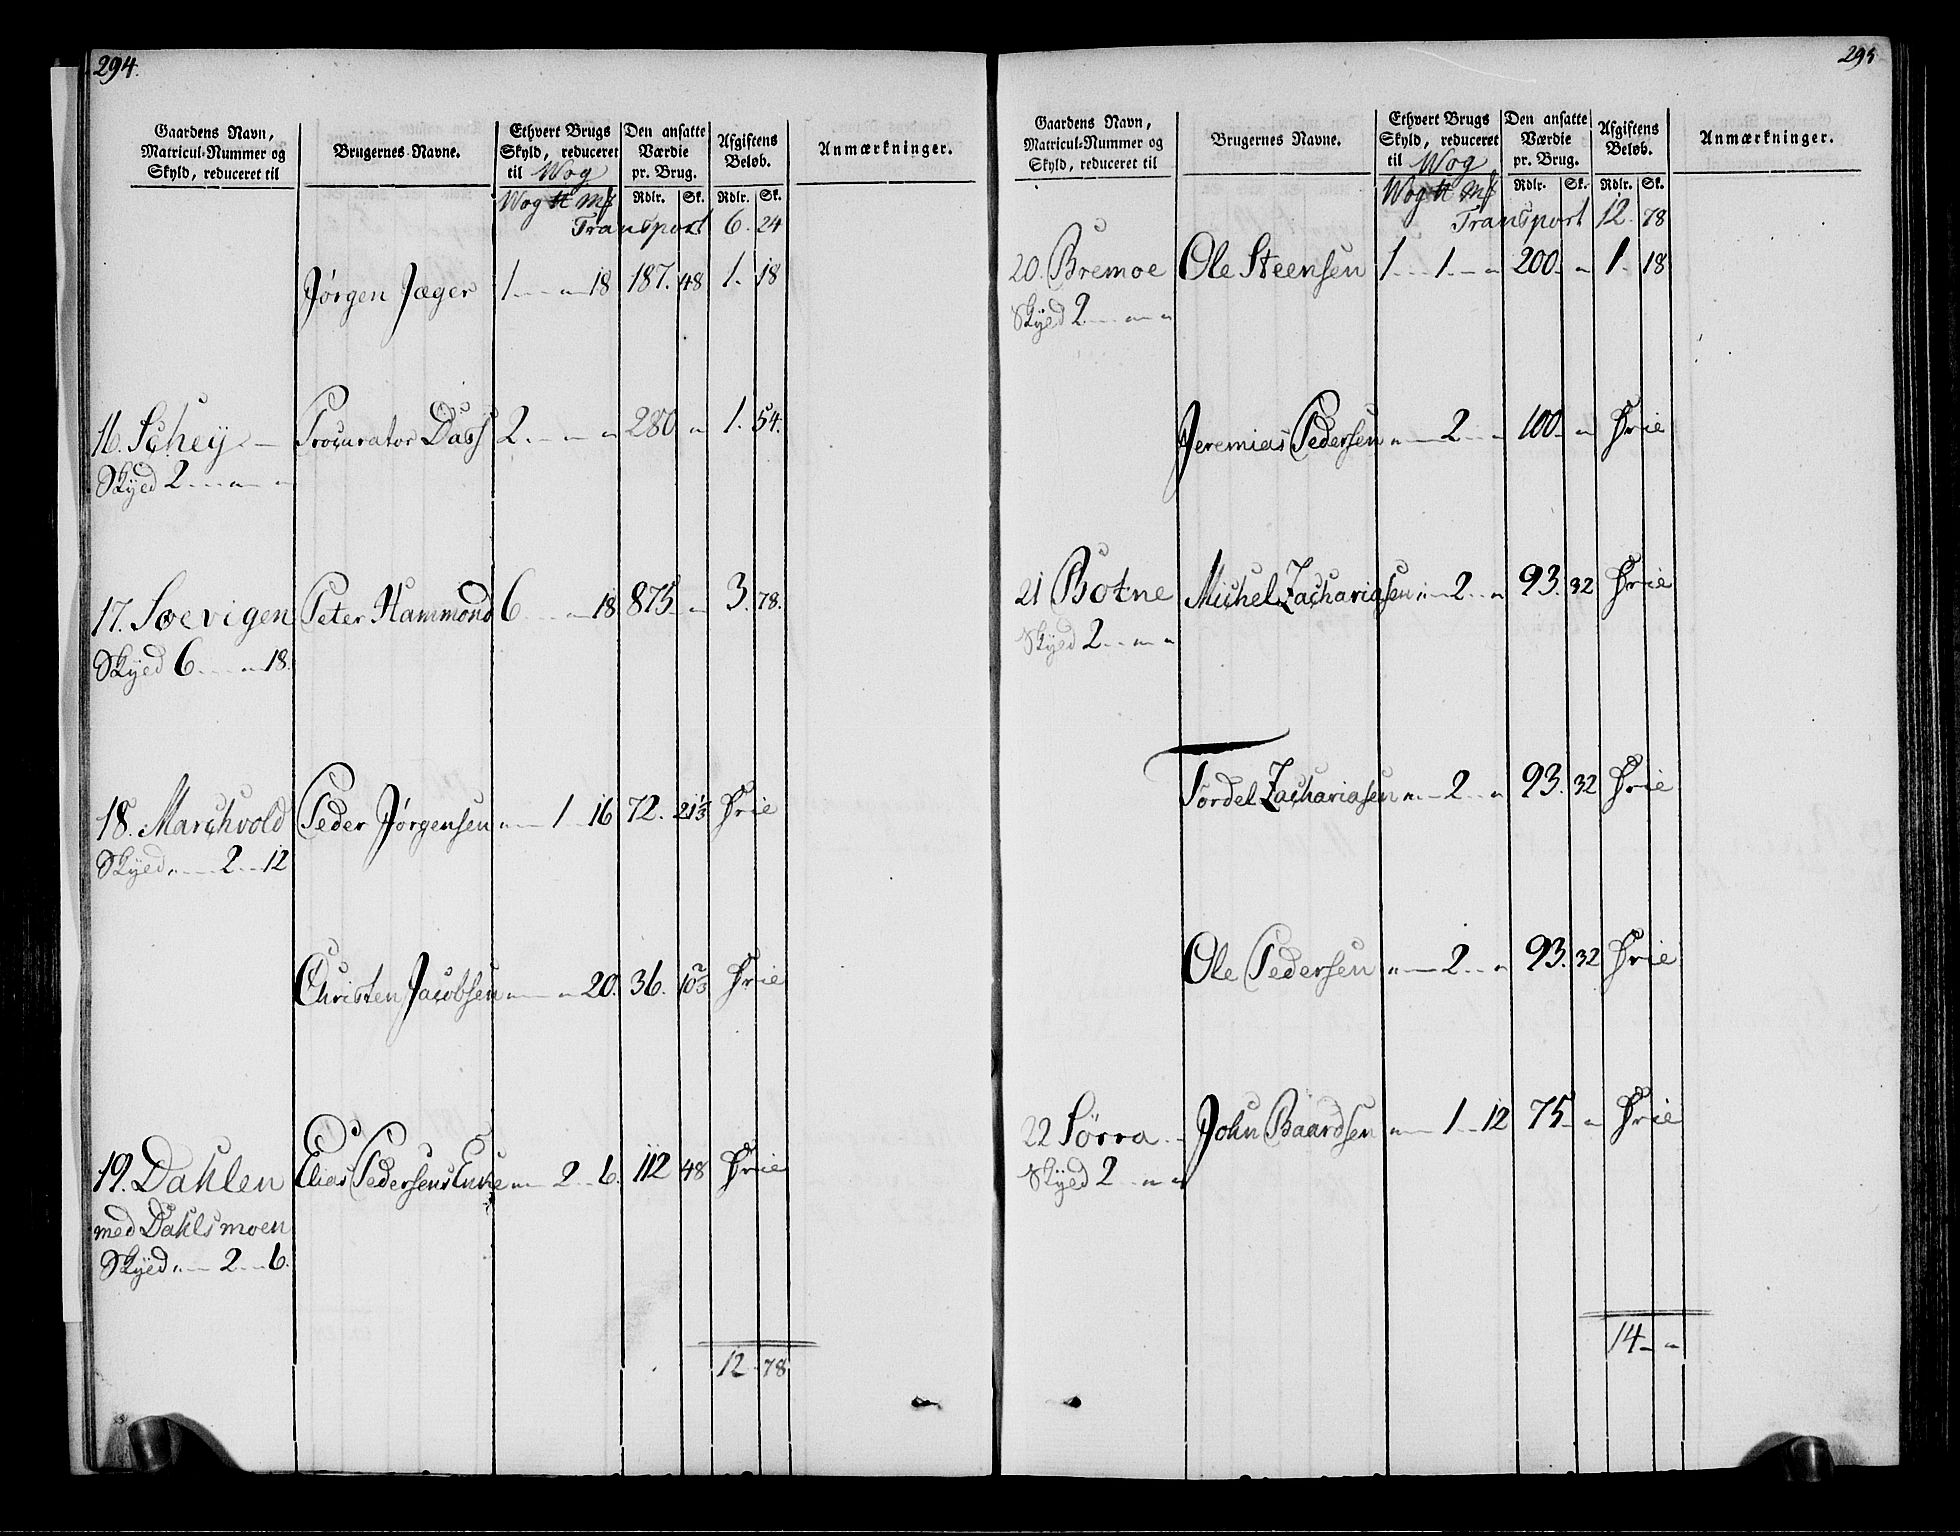 294.
Gaardens Navn, Matricul-Nummer og Skyld, reduceret til
Brugernes Navne.
Ethvert Brugs Skyld, reduceret til Wog
Den ansatte Værdie pr. Brug.
Afgiftens Beløb.
Anmærkninger.
Wog ℔ Mk Rdlr. Sk. Rdlr. Sk.
Transport 6. 24
Jørgen Jæger 1 .. " 18 187. 48 1. 18
16. Schey — Procurator Dass 2 .. " " 280 " 1. 54.
Skyed 2 .. " "
17. Soevigen Peter Hammond 6 .. " 18 875 " 3. 78.
Skyed 6 .. " 18
18. Marchvold Peder Jørgensen " 1 16 72. 21⅓ Frie
Skyed " 2 12
Christen Jacobsen " " 20. 36. 10⅔ Frie
19. Dahlen Elias Pedersens Enke " 2 6. 112 48 Frie
med Dahlsmoen
Skyed " 2 6.
12 78
295
Gaardens Navn, Matricul-Nummer og Skyld, reduceret til
Brugernes Navne.
Ethvert Brugs Skyld, reduceret til Wog
Den ansatte Værdie pr. Brug.
Afgiftens Beløb.
Anmærkninger.
Wog ℔ Mk Rdlr. Sk. Rdlr. Sk.
Transport 12. 78
20. Bremoe Ole Steensen 1 1 " 200. " 1. 18
Skyed 2 .. " "
Jeremias Pedersen " 2 " 100 " Frie
21 Botne Michel Zachariasen " 2 " 93. 32 Frie
Skyed 2 .. " "
Tordel Zachariasen " 2 " 93. 32 Frie
Ole Pedersen " 2 " 93. 32 Frie
22 Sørra John Baardsen " 1 12 75 " Frie
Skyed 2 .. " "
14 "